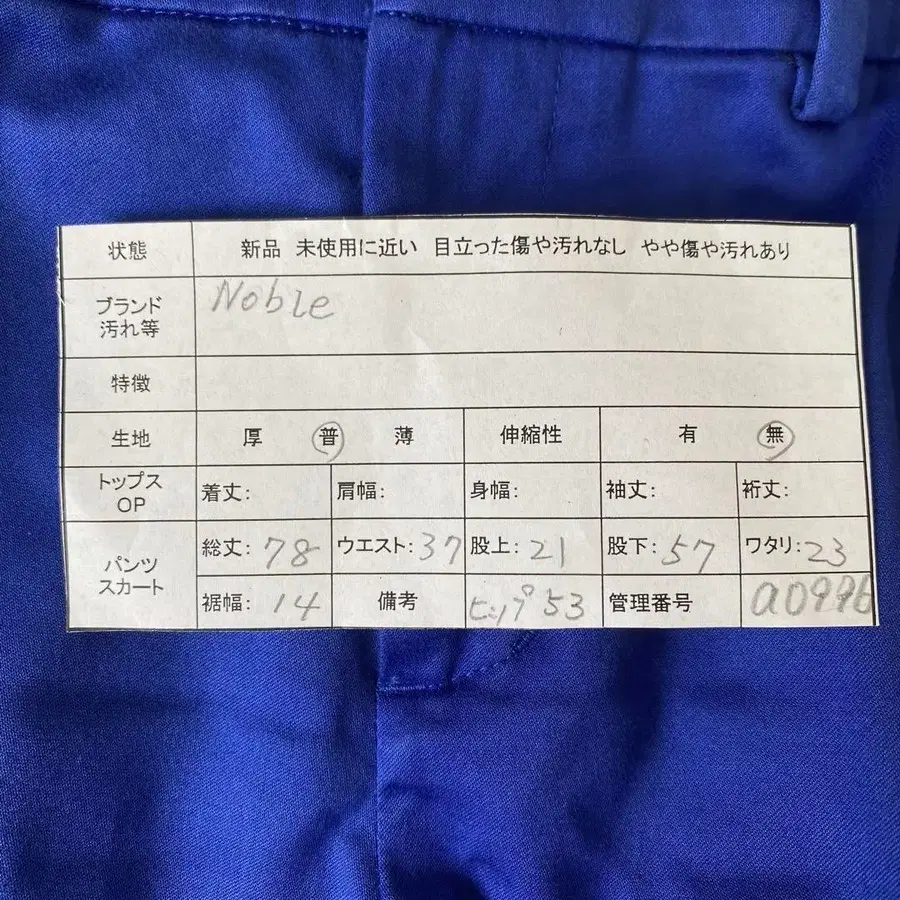 状態 新品 未使用に近い 目立った傷や汚れなし やや傷や汚れあり
ブランド 汚れ等 Noble
特徴
生地 厚 普 薄 伸縮性 有 無
トップス OP 着丈: 肩幅: 身幅: 袖丈: 裄丈:
パンツ スカート 総丈: 78 ウエスト: 37 股上: 21 股下: 57 ワタリ: 23
裾幅: 14 備考 ヒップ 53 管理番号 a0996